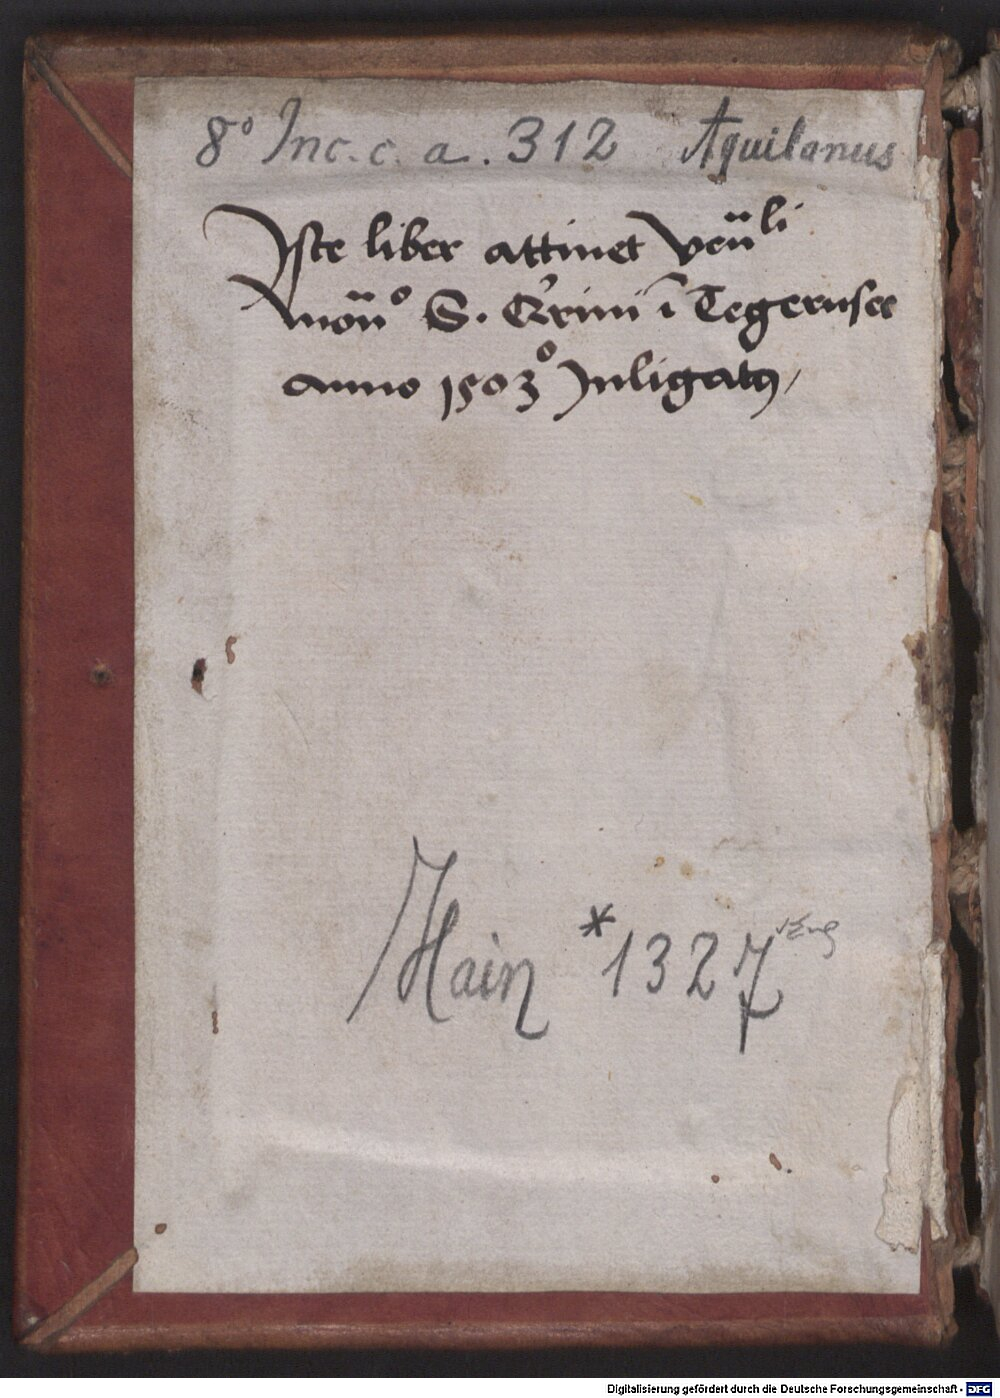 8° Inc. c. a. 312 Aquilanus
Iste liber attinet Ven̅li
Mon̅° S. Qrini i̅ Tegernsee
anno 1503° Inligatꝯ
Hain *1327
Digitalisierung gefördert durch die Deutsche Forschungsgemeinschaft - DFG